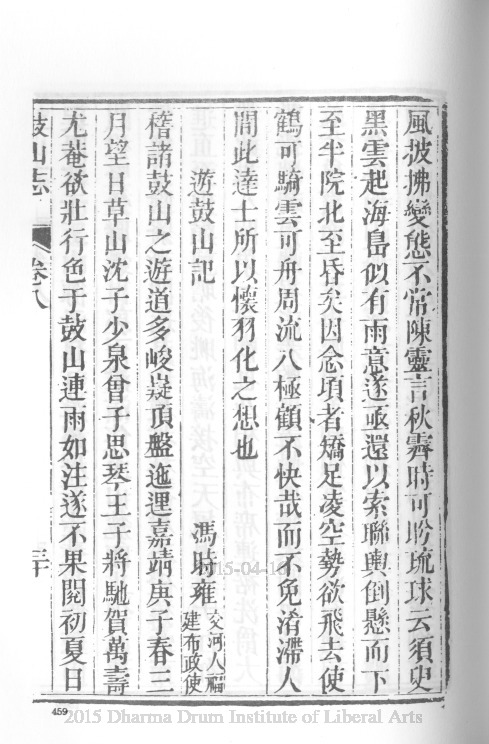 風披拂變態不常陳靈言秋霽時可盻琉球云須臾
黑雲起海島似有雨意遂亟還以索聯輿倒懸而下
至半院北至昏矣因念頃者矯足凌空勢欲飛去使
鶴可騎雲可舟周流八極顧不快哉而不免淆滯人
間此達士所以懷羽化之想也
遊鼓山記 馮時雍 交河人福建布政使
稽諸鼓山之遊道多峻嶷頂盤迤逦嘉靖庚子春三
月望日草山沈子少泉曾子思琴王子將馳賀萬壽
尤菴欲壯行色于鼓山連雨如注遂不果閱初夏日
鼓山志 卷八 三十
2015-04-16
459
2015 Dharma Drum Institute of Liberal Arts